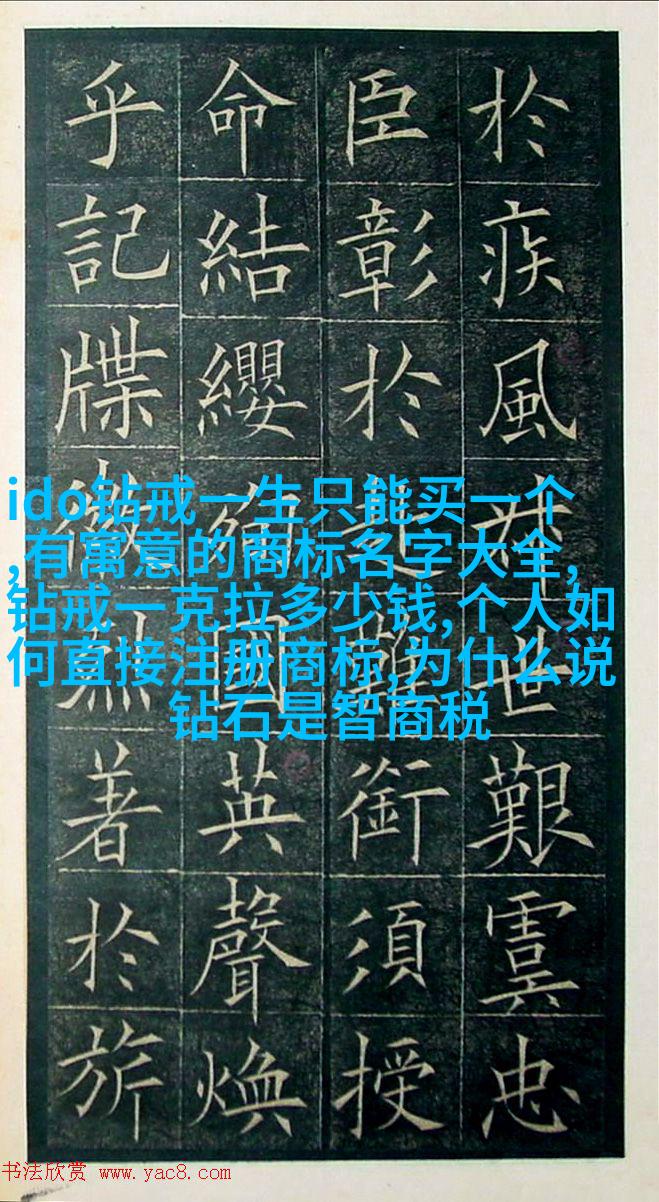 於疾風世艱虞忠
臣彰於難銜須授
命結纓國英聲煥
乎記牒徽著於旂
ido钻戒一生只能买一个
,有寓意的商标名字大全,
钻戒一克拉多少钱,个人如
何直接注册商标,为什么说
钻石是智商税
书法欣赏 www.yac8.com